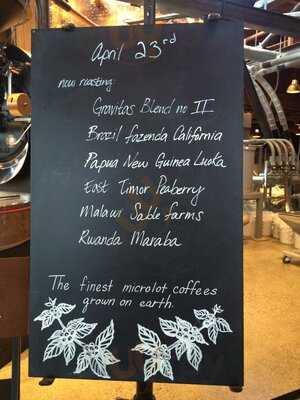 April 23rd
now roasting:
Gravitas Blend no II
Brazil fazenda California
Papua New Guinea Luoka
East Timor Peaberry
Malawi Sable farms
Rwanda Maraba
The finest microlot coffees
grown on earth.